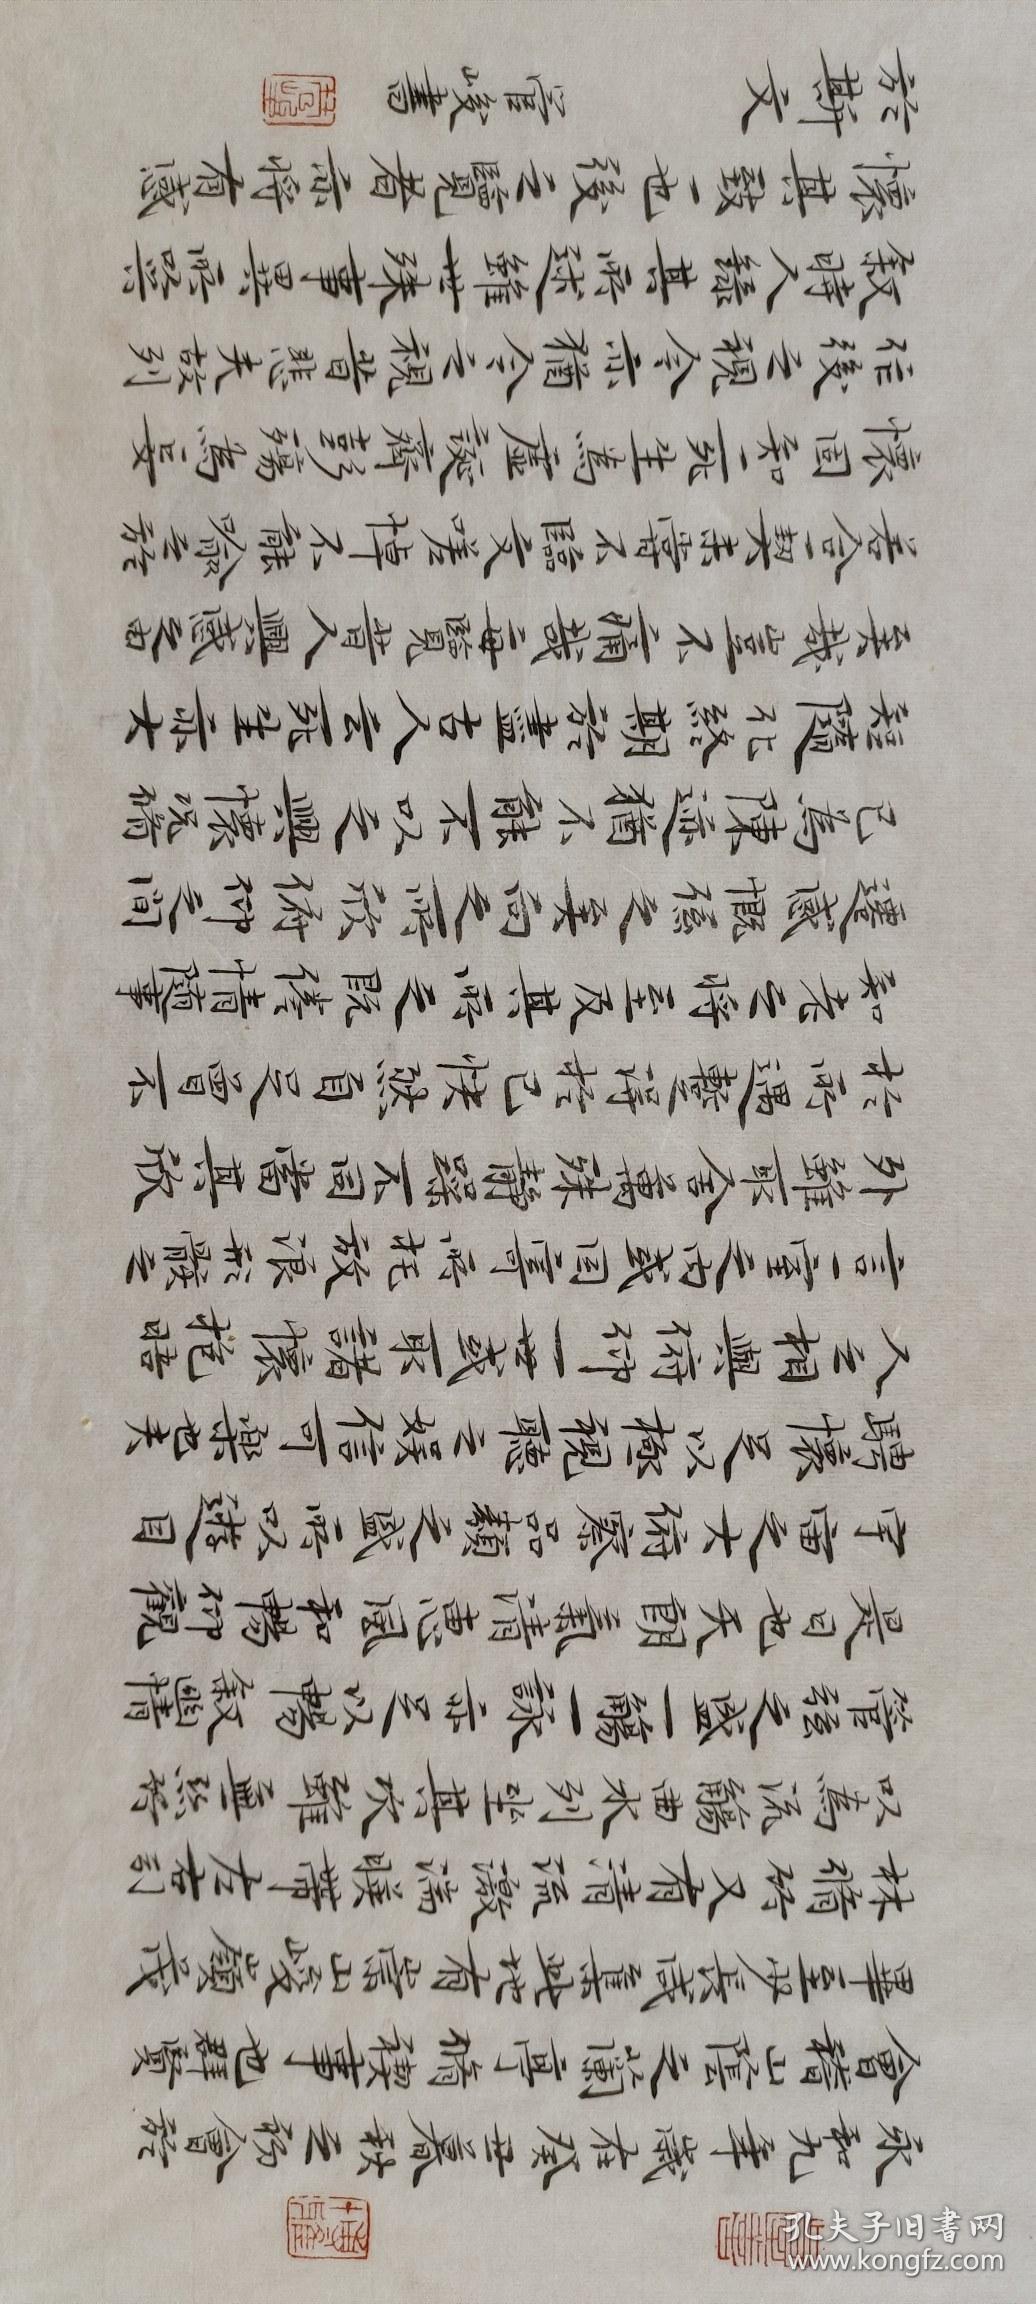 永和九年歲在癸丑暮春之初會於
會稽山陰之蘭亭脩禊事也群賢
畢至少長咸集此地有崇山峻領茂
林脩竹又有清流激湍暎帶左右引
以為流觴曲水列坐其次雖無絲竹
管弦之盛一觴一詠亦足以暢敘幽情
是日也天朗氣清惠風和暢仰觀
宇宙之大俯察品類之盛所以遊目
騁懷足以極視聽之娛信可樂也夫
人之相與俯仰一世或取諸懷抱晤
言一室之內或因寄所托放浪形骸之
外雖取舍萬殊靜躁不同當其欣
於所遇暫得於己快然自足曾不
知老之將至及其所之既倦情隨事
遷感慨係之矣向之所欣俯仰之間
已為陳迹猶不能不以之興懷況脩
短隨化終期於盡古人云死生亦大
矣哉豈不痛哉每覽昔人興感之由
若合一契未嘗不臨文嗟悼不能喻之於
懷固知一死生為虛誕齊彭殤為妄
作後之視今亦猶今之視昔悲夫故列
敘時人錄其所述雖世殊事異所以興
懷其致一也後之覽者亦將有感
於斯文
峻書
孔夫子旧书网
www.kongfz.com